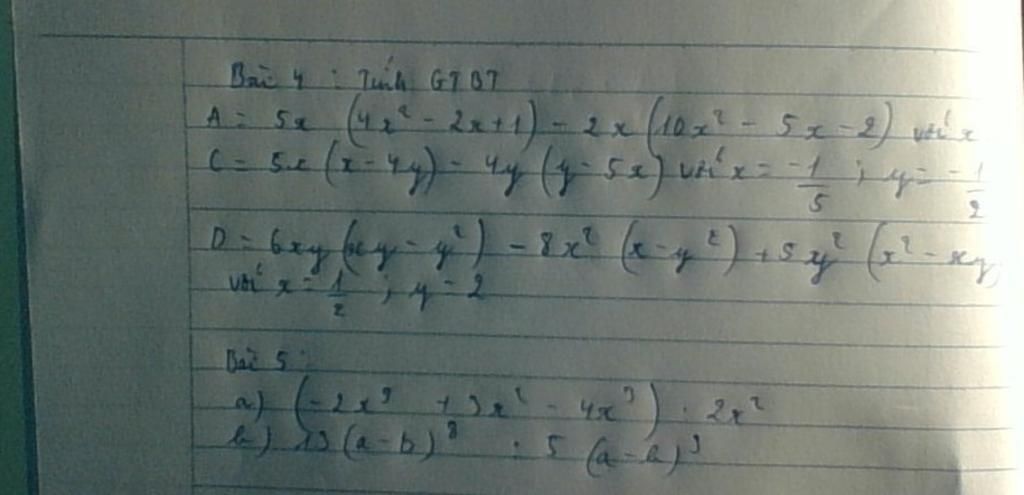 Bài 4 : Tính GTBT
A = 5x (4x² - 2x + 1) - 2x (10x² - 5x - 2) với x
C = 5x (x - 4y) - 4y (y - 5x) với x = -1/5 ; y = -1/2
D = 6xy (xy - y²) - 8x² (x - y²) + 5y² (x² - xy
với x = 1/2 ; y = 2
Bài 5 :
a) (-2x³ + 3x² - 4x³) : 2x²
b) (a - b)⁸ : 5 (a - b)³